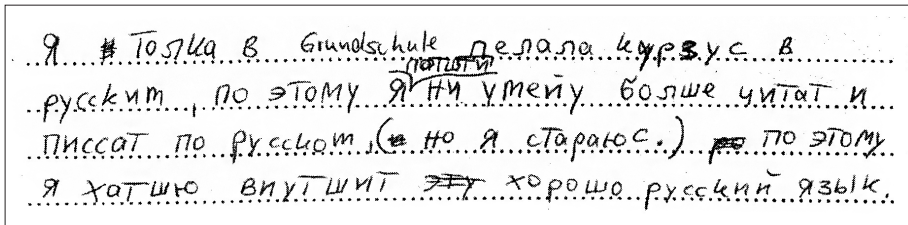 Я толка в Grundschule делала курзус в
русским, по этому я ни умейу болше читат и
писсат по русском, (но я стараюс.) по этому
я хатшю виутшит хорошо русский язык.